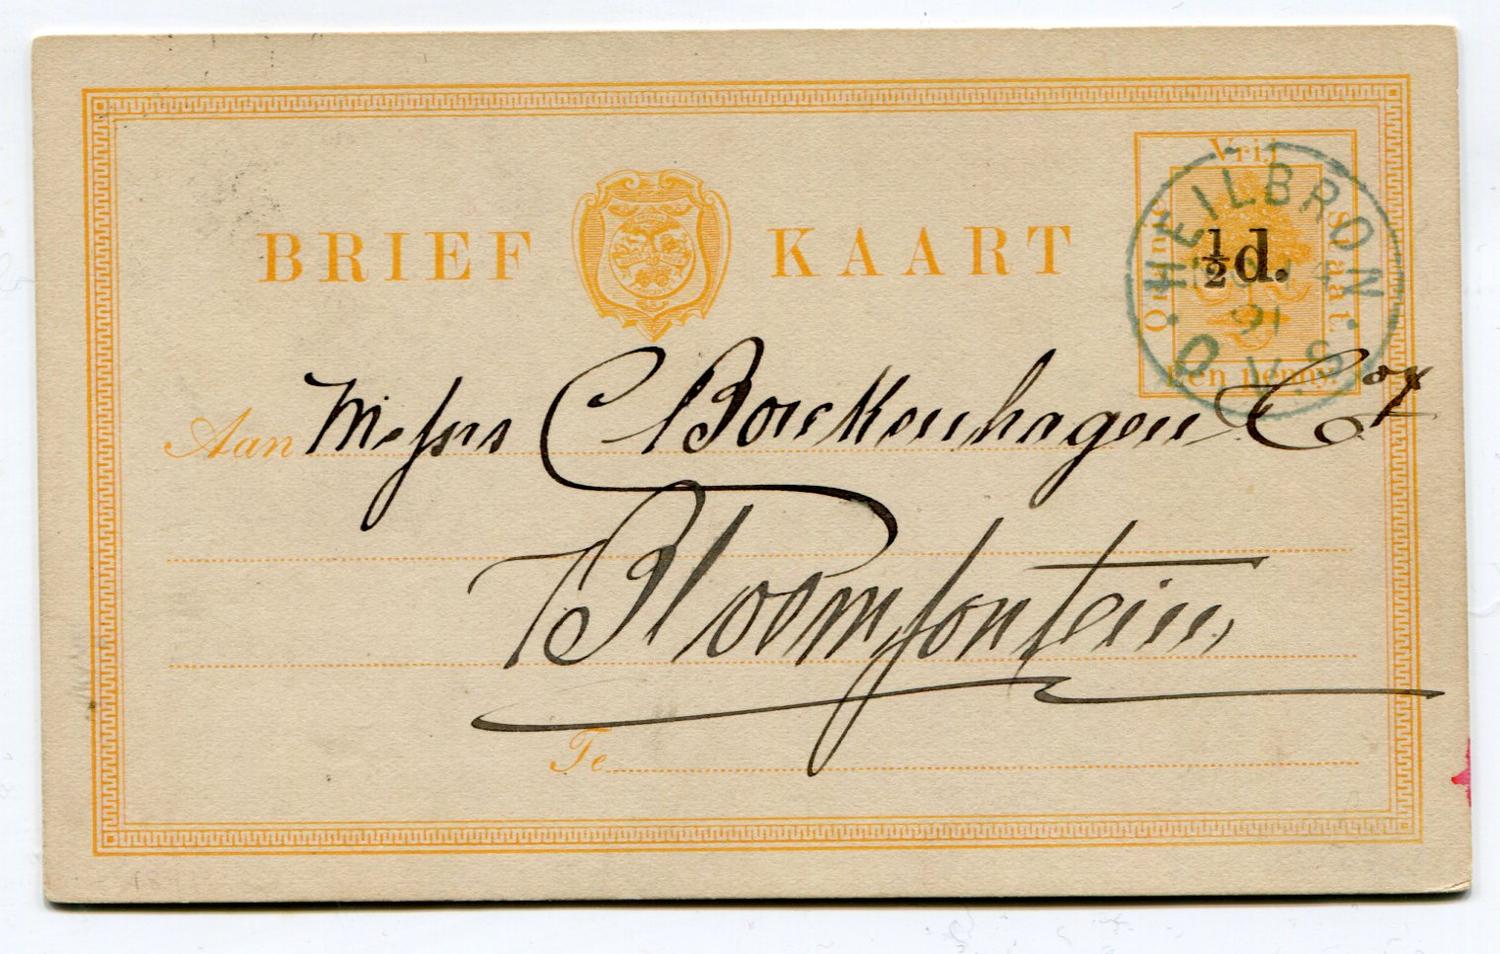 BRIEF KAART
Vrij
Oranje
Staat.
Een penny.
½d.
HEILBRON
91
O.V.S.
Aan Messrs C Borckenhagen & Coy
Bloemfontein
Te